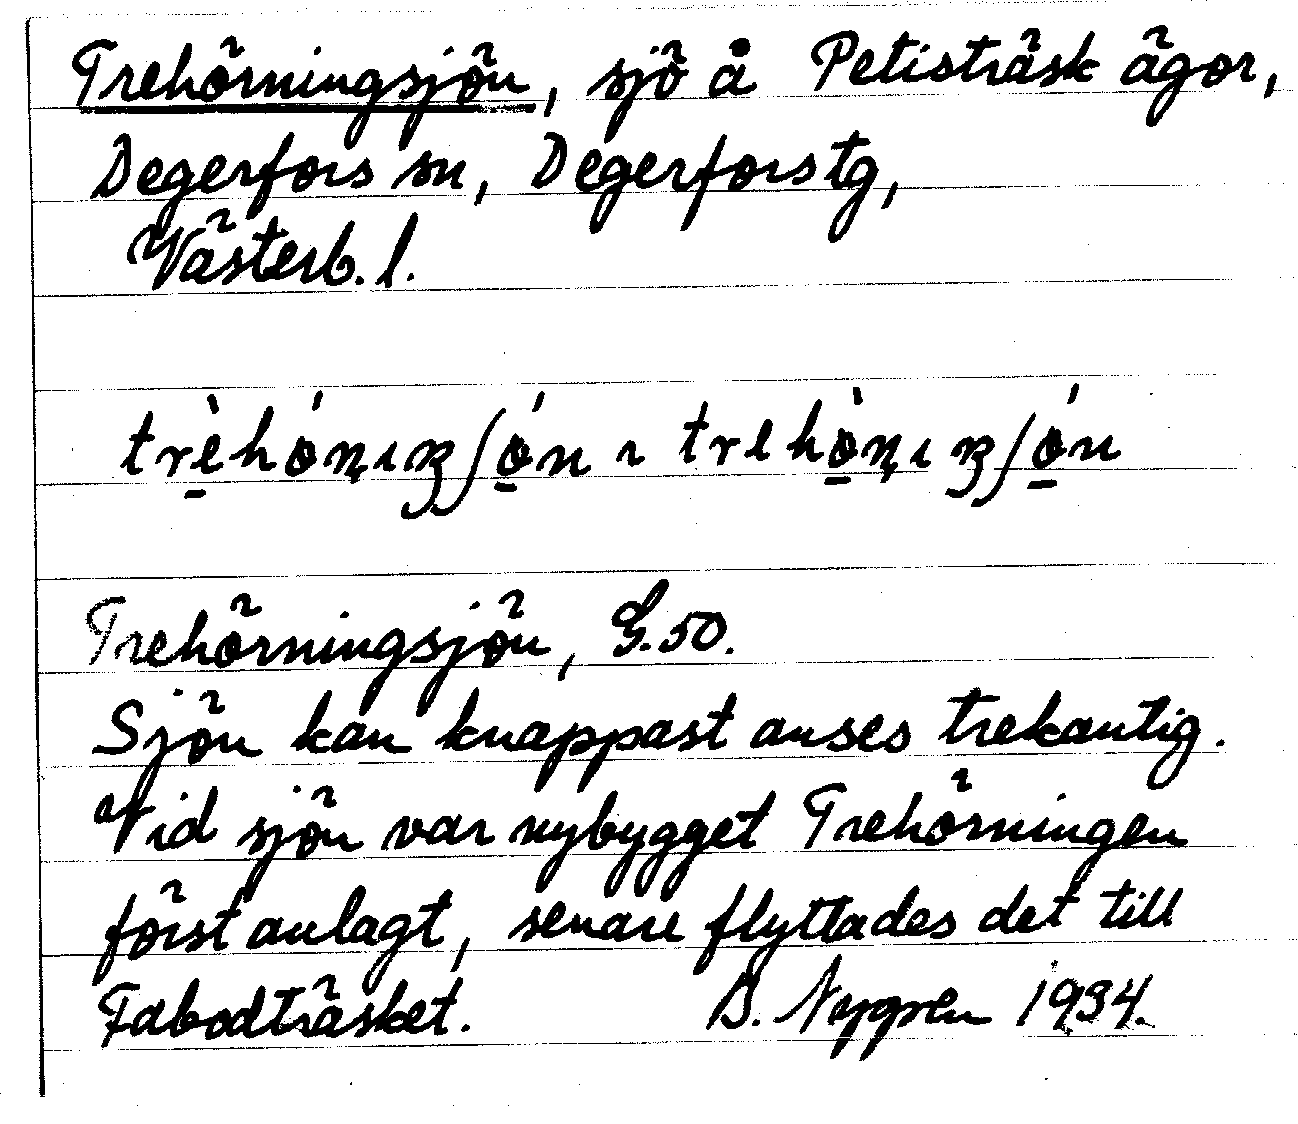 Trehörningsjön, sjö å Petisträsk ägor,
Degerfors sn, Degerfors tg,
Västerb. l.
trèhónıŋʃón ı trehònıŋʃón
Trehörningsjön, G.50.
Sjön kan knappast anses trekantig.
Vid sjön var nybygget Trehörningen
först anlagt, senare flyttades det till
Fabodträsket. 1934.